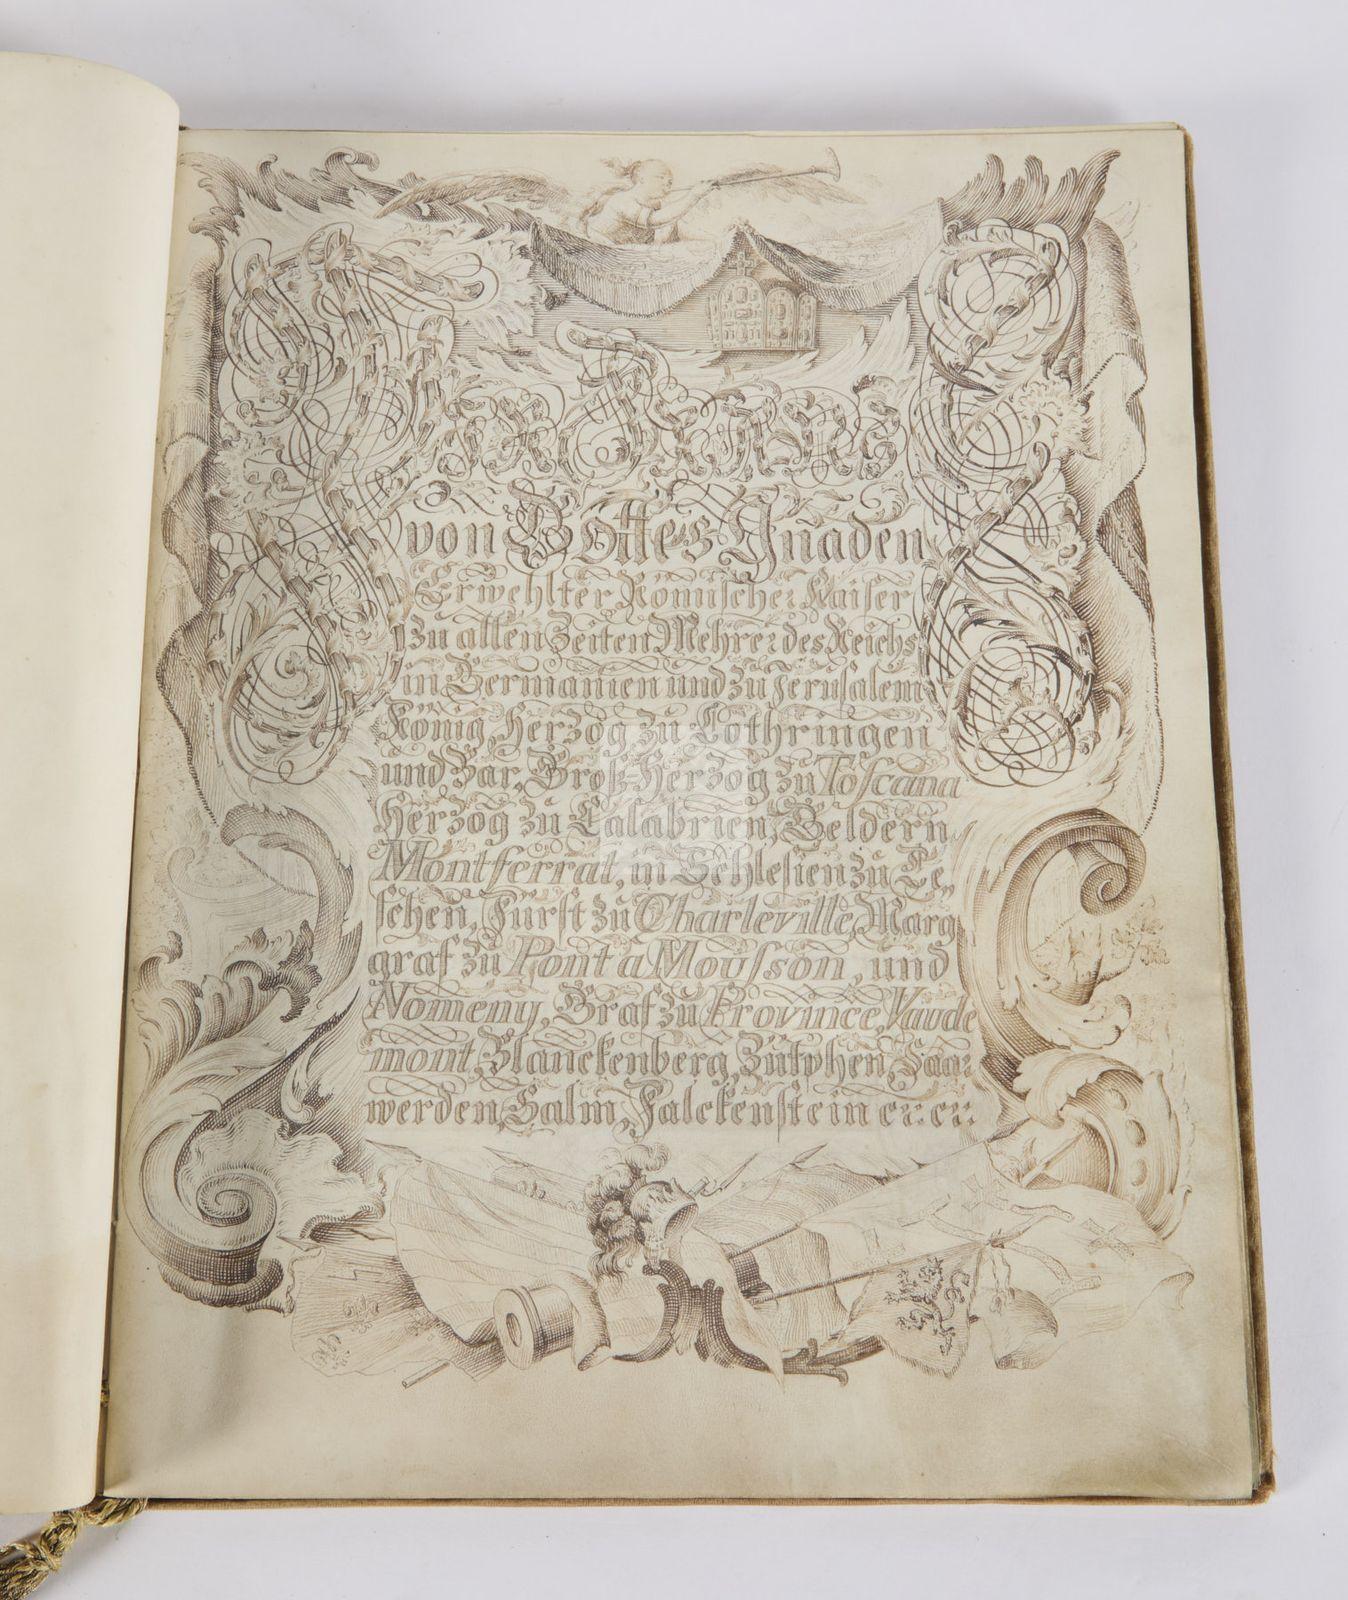 Wir Franciscus
von Gottes Gnaden
Erwehlter Römischer Kaiser
zu allen Zeiten Mehrer des Reichs
in Germanien und zu Jerusalem
König, Herzog zu Lothringen
und Bar, Groß-Herzog zu Toscana
Herzog zu Calabrien, Geldern,
Montferrat, in Schlesien zu Te„
schen, Fürst zu Charleville, Marg
graf zu Pont a Mousson, und
Nomeny, Graf zu Province, Vaude
mont, Blanckenberg, Zütphen, Saar
werden, Salm, Falckenstein etc. etc.